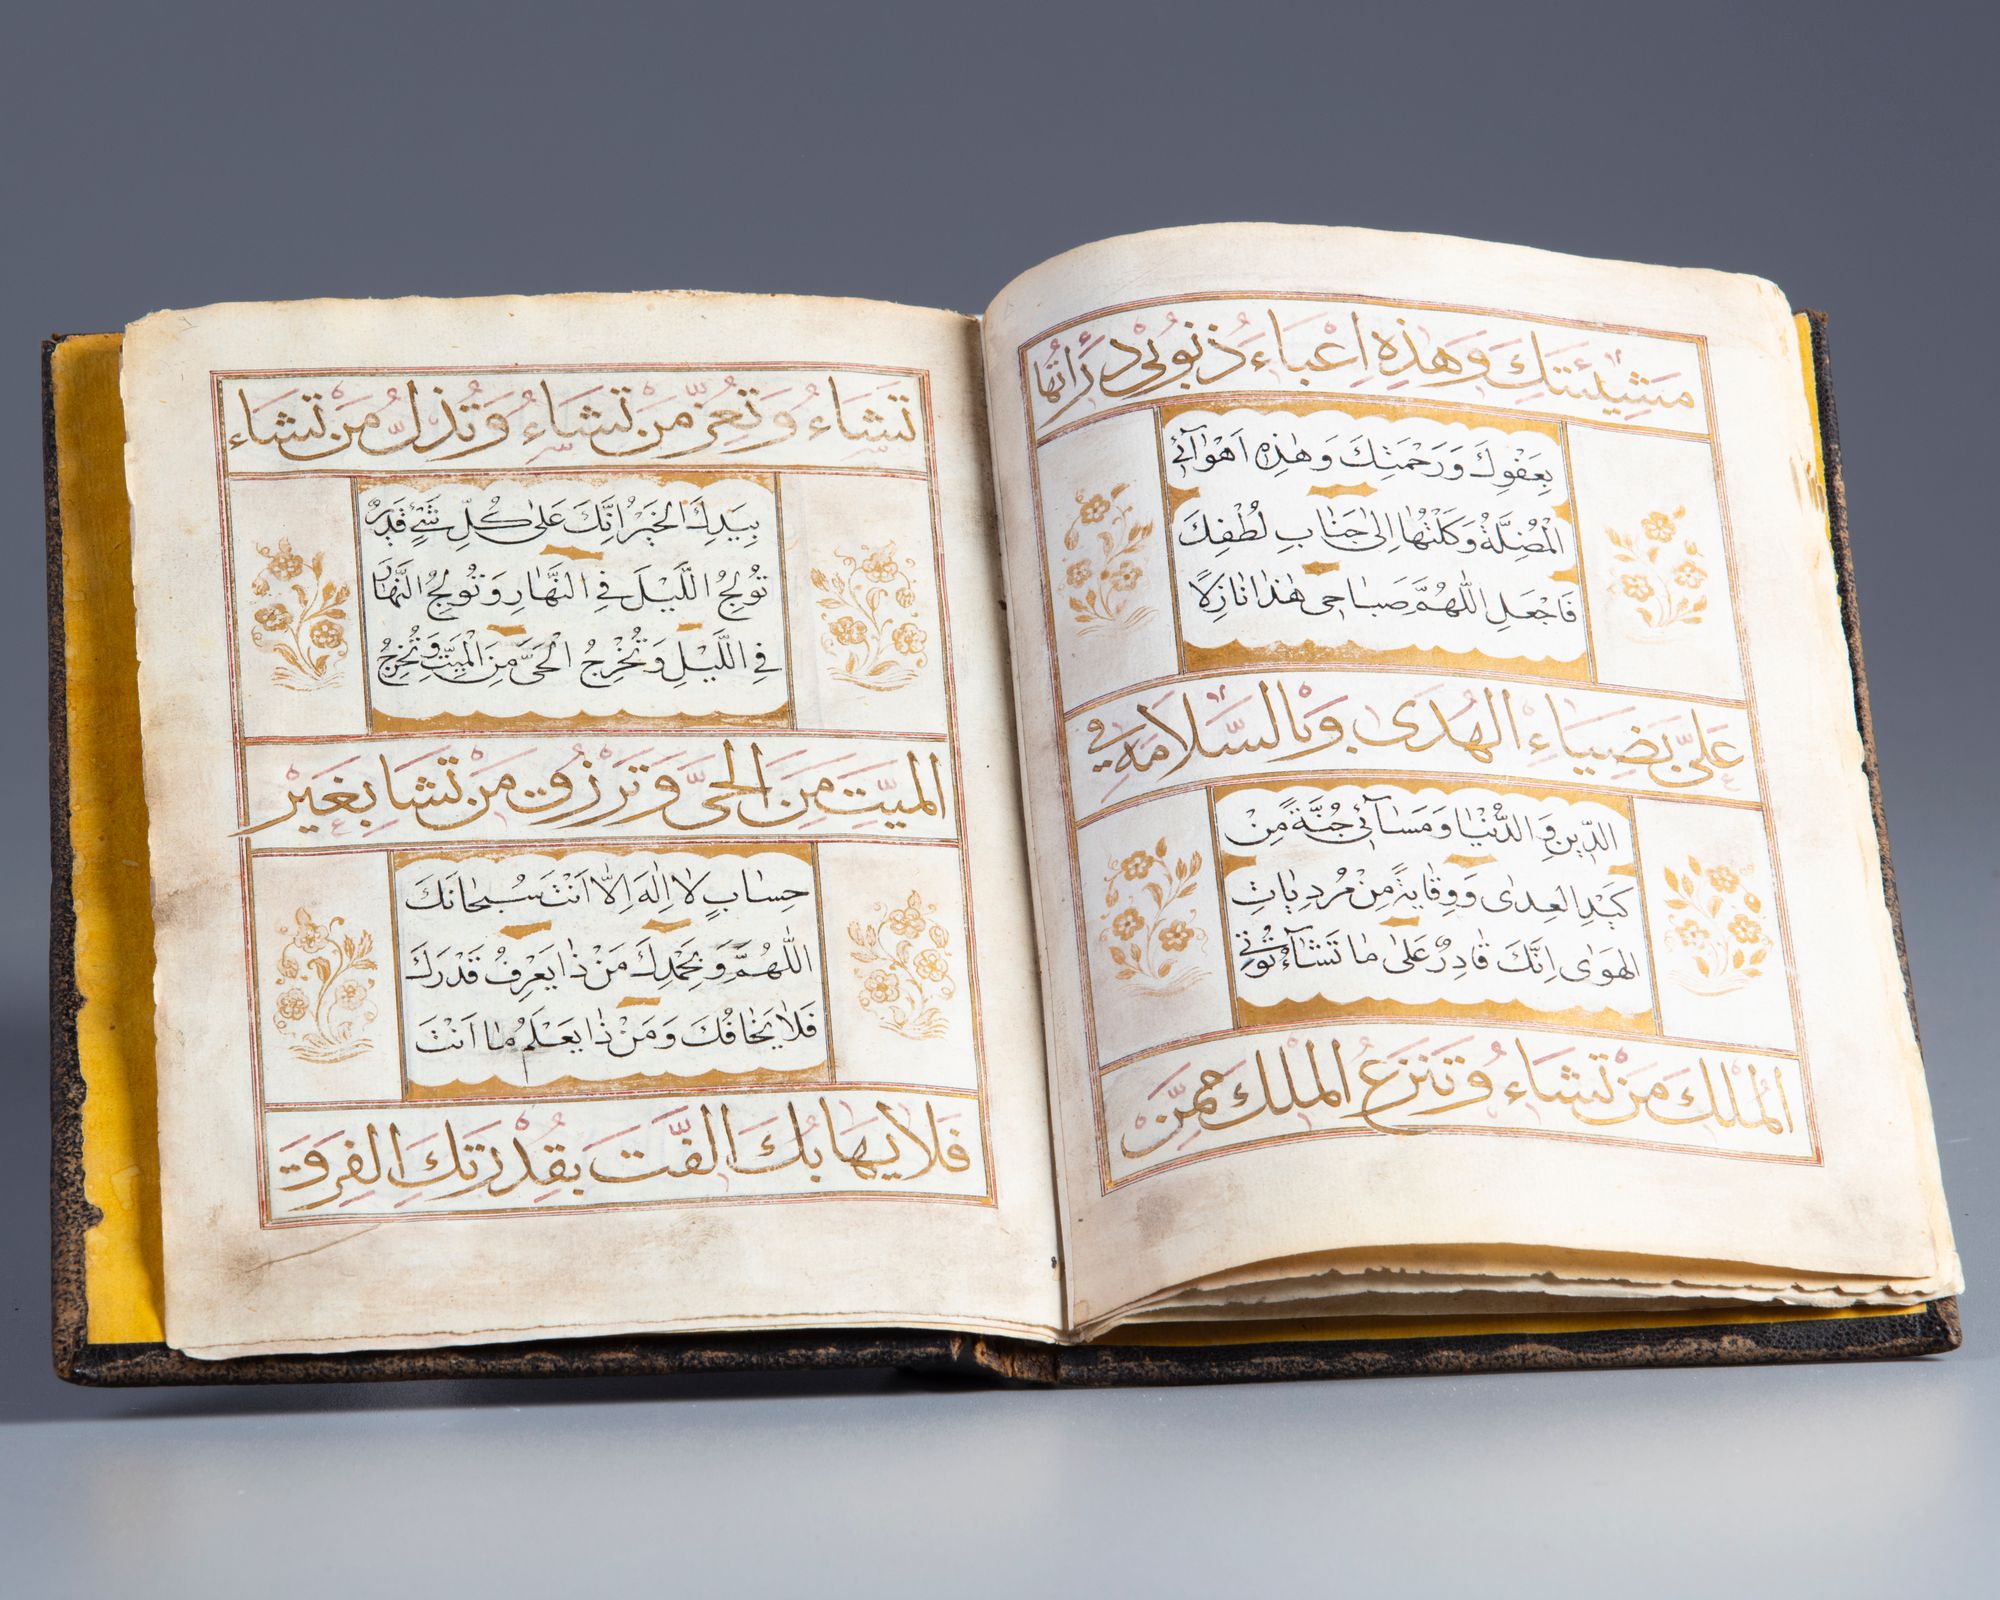 مَشِيئَتِكَ وَهٰذِهِ اِعْبَاءَ ذُنُوبِى دَرَأتُهَا
بِعَفْوِكَ وَرَحْمَتِكَ وَهٰذِهِ اَهْوَآئِى
الْمُضِلَّةُ وَكَلْتُهَا اِلىٰ جَنَابِ لُطْفِكَ
فَاجْعَلِ اللّٰهُمَّ صَبَاحى هٰذَا نَازِلًا
عَلَىَّ بِضِيَاءِ الْهُدَى وَبِالسَّلَامَةِ فِى
الدِّينِ وَ الدُّنْيَا وَمَسَآئِى جُنَّةً مِنْ
كَيْدِ الْعِدىٰ وَوِقَايَةً مِنْ مُرْدِيَاتِ
الهَوٰى اِنَّكَ قَادِرٌ عَلىٰ مَا تَشَآءُ تُؤْتِى
الْمُلْكَ مَنْ تَشَاءُ وَتَنْزِعُ الْمُلْكَ مِمَّنْ
تَشَاءُ وَتُعِزُّ مَنْ تَشَاءُ وَتُذِلُّ مَنْ تَشَاءُ
بِيَدِكَ الخَيْرُ اِنَّكَ عَلىٰ كُلِّ شَئٍ قَدِيرٌ
تُولِجُ اللَّيْلَ فِى النَّهَارِ وَتُولِجُ النَّهَارَ
فِى اللَّيْلِ وَتُخْرِجُ الْحَىَّ مِنَ الْمَيِّتِ وَتُخْرِجُ
الْمَيِّتَ مِنَ الْحَىِّ وَتَرْزُقُ مَنْ تَشَا بِغَيْرِ
حِسَابٍ لَا اِلٰهَ اِلَّا اَنْتَ سُبْحَانَكَ
اللّٰهُمَّ وَبِحَمْدِكَ مَنْ ذَا يَعْرِفُ قَدْرَكَ
فَلَا يَخَافُكَ وَمَنْ ذَا يَعْلَمُ مَا اَنْتَ
فَلَا يَهَابُكَ اَلَّفْتَ بِقُدْرَتِكَ الْفِرَقَ